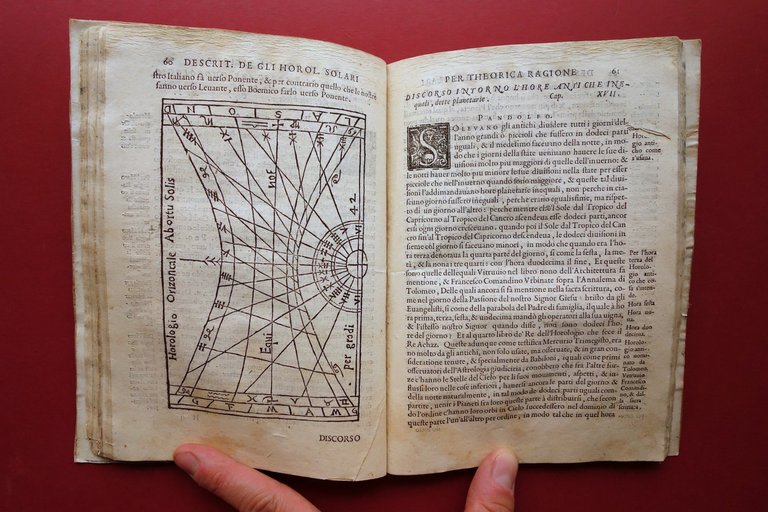 60 DESCRIT. DE GLI HOROL. SOLARI
stro Italiano fà verso Ponente, & per contrario quello che le nostre
fanno verso Levante, esso Boemico farlo verso Ponente.
Horologio Orizonale Abortu Solis
Equi
per gradi 42
DISCORSO
PER THEORICA RAGIONE 61
DISCORSO INTORNO L'HORE ANTICHE INE-
quali, dette planetarie. Cap. XVII.
PANDOLFO.
SOLEVANO gli antichi dividere tutti i giorni del
l'anno grandi ò piccioli che fussero in dodeci parti
inguali, & il medesimo faceuano della notte, in mo-
do che i giorni della state ueniuano hauere le sue di
uisioni molto piu maggiori di quelle dell'inuerno: &
le notti hauer molto piu minore le sue diuisioni nella state per esser
picciole che nell'inuerno quando sono maggiore, & queste tal diui
sioni l'addimandauano hore planetarie inequali, non perche in cia-
scun giorno fussero inequali, perche erano egualissime, ma rispet-
to di un giorno all'altro: perche mentre che'l Sole dal Tropico del
Capricorno al Tropico del Cancro ascendeua esse dodeci parti, ancor
essi ogni giorno cresceuano. quando poi il Sole dal Tropico del Can
cro fin'al Tropico del Capricorno descendeua, le dodeci diuisioni in
sieme col giorno si faceuano minori, in modo che quando era l'ho-
ra terza denotaua la quarta parte del giorno, si come la sesta, la me-
tà, & la nona i tre quarti: con l'hora duodecima il fine, Et queste
sono quelle delle quali Vitruuio nel libro nono dell'Architettura fa
mentione, & Francesco Comandino Vrbinate sopra l'Annalema di
Tolomeo, Delle quali ancora si fà mentione nella sacra scrittura, co-
me nel giorno della Passione del nostro Signor Giesu christo da gli
Euangelisti, & come della parabola del Padre di famiglia, il quale à ho
ra prima, terza, sesta, & undecima mandò gli operatori alla sua uigna,
& l'istesso nostro Signor quando disse, non sono dodeci l'hore
del giorno? Et al quarto libro de' Re dell'Horologio che fece il
Re Achaz. Queste adunque come testifica Mercurio Trimegisto, era
no molto da gli antichi, non solo usate, ma osseruate, & in gran con-
sideratione tenute, & specialmente da Babiloni, quai sempre furono
osseruatori dell'Astrologia giudiciaria, conobbeno che fra l'altre for-
ze c'hanno le Stelle del Cielo per li suoi mouimenti, aspetti, & in-
flussi loro nelle cose inferiori, hauessi ancora le parti del giorno &
della notte naturalmente, in tal modo de dodeci parti inguali com-
partite, uenir i Pianeti fra loro queste parte à distribuirsi, che secon
do l'ordine c'hanno loro orbi in Cielo succedessero nel dominio di
queste parte l'un'all'altro per ordine, in modo tale che in quel hora
Hor-
gio anti-
cho come
s'usaua.
Per l'hora
terza del
Horolo-
gio anti-
co che co
sa s'inten-
de.
Hora sesta
Hora no-
na.
Hora duo
decima.
Horolo-
gio anti-
co nomi-
nato da
Tolomeo.
Vitruuio
Francesco
Comandi-
no, & dal-
la sacra
scrittura.